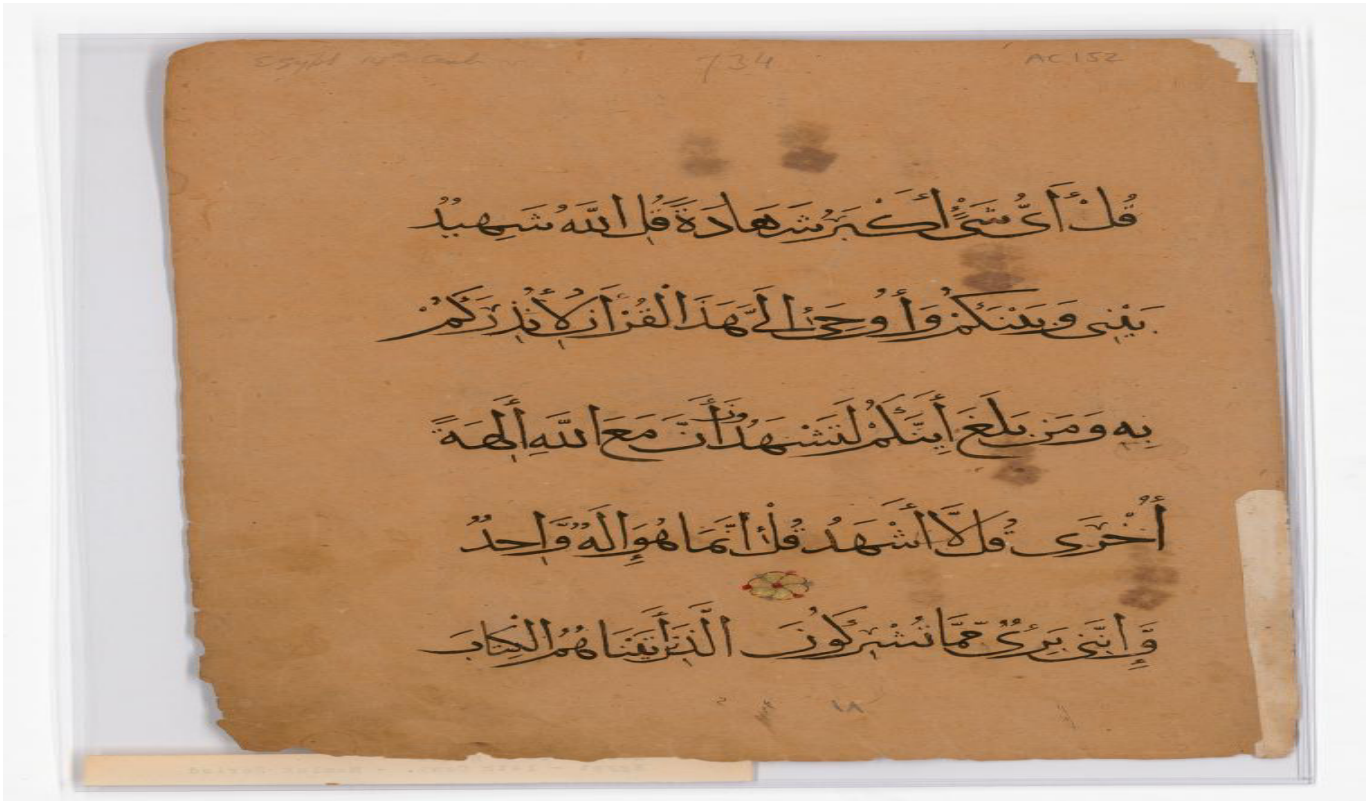 Egypt 14th Cent. 734 AC 152
قُلْ أَيُّ شَيْءٍ أَكْبَرُ شَهَادَةً قُلِ اللَّهُ شَهِيدٌ
بَيْنِي وَبَيْنَكُمْ وَأُوحِيَ إِلَيَّ هَذَا الْقُرْآنُ لِأُنْذِرَكُمْ
بِهِ وَمَنْ بَلَغَ أَئِنَّكُمْ لَتَشْهَدُونَ أَنَّ مَعَ اللَّهِ آلِهَةً
أُخْرَى قُلْ لَّا أَشْهَدُ قُلْ إِنَّمَا هُوَ إِلَهٌ وَّاحِدٌ
وَّإِنَّنِي بَرِيءٌ مِّمَّا تُشْرِكُونَ الَّذِينَ آتَيْنَاهُمُ الْكِتَابَ
١٨